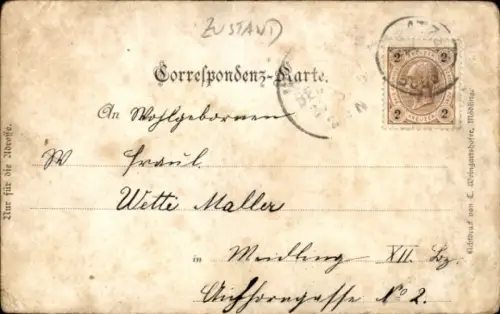 ZUSTAND
Correspondenz-Karte.
An Wohlgebornen
W Fräul.
Wetti Maller
in Meidling XII. Bz.
Aichhorngasse No 2.
Nur für die Adresse.
Lichtdruck von C. Weingartshofer, Mödling.
2 2
2 KREUZER 2